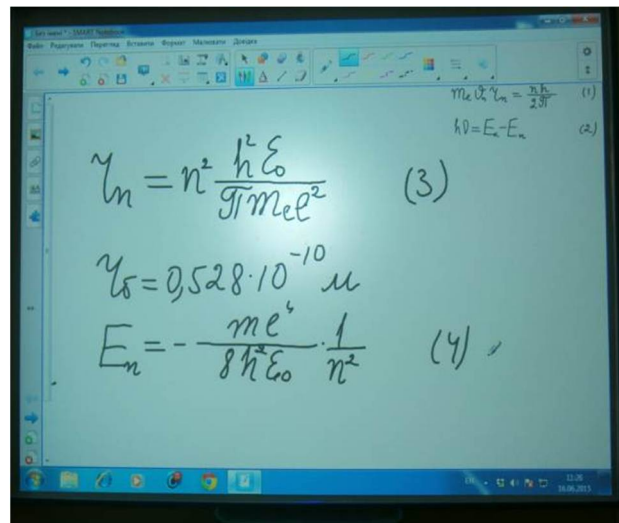 Без имени * - SMART Notebook
Файл Редагувати Перегляд Вставити Формат Малювати Довідка
mₑ ϑₙ rₙ = nh/2π (1)
hν = Eₖ - Eₙ (2)
rₙ = n² h²ε₀/πmₑe² (3)
r_б = 0,528·10⁻¹⁰ м
Eₙ = - me⁴/8h²ε₀ · 1/n² (4)
EN
12:26
16.06.2015